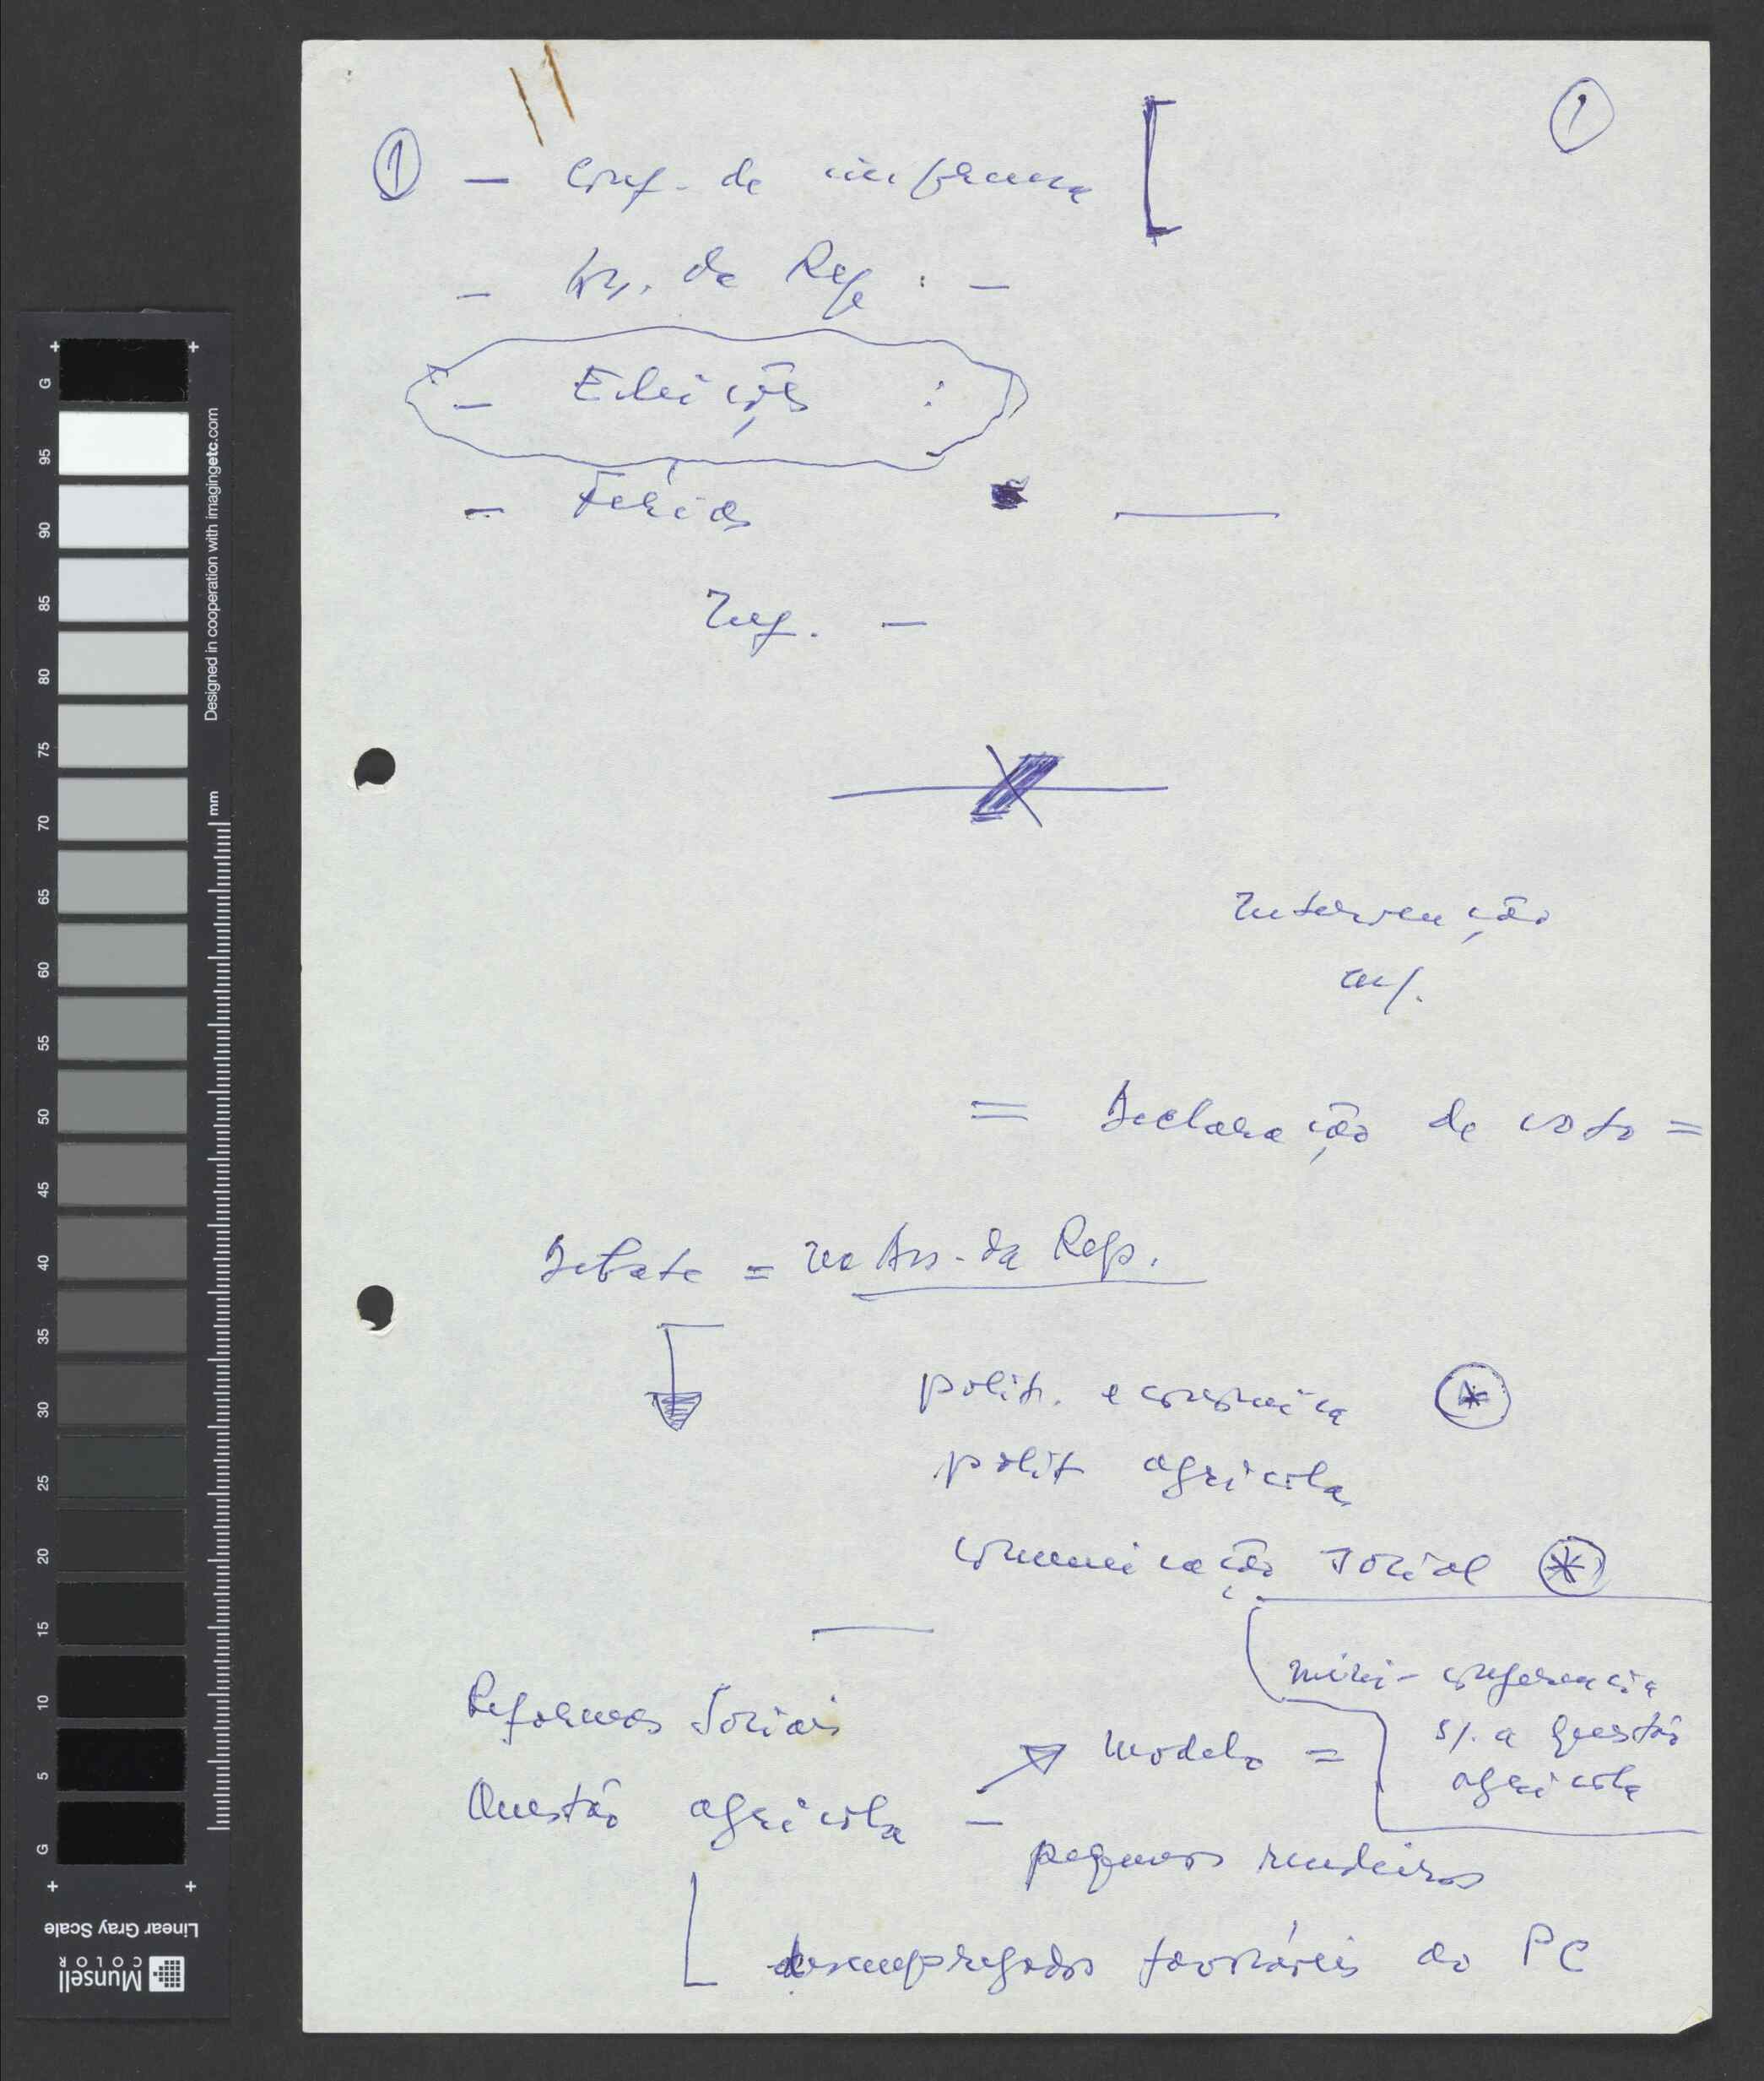 1
① — Conf. de imprensa [
— Ass. da Rep. : —
— Eleições :
— Férias ———
Inf. —
Intervenção
= Declaração de voto =
Debate = na Ass. da Rep.
polit. economica *
polit agricola
comunicação social *
mini-conferencia
s/. a questão
agricola
Reformas Sociais
modelo =
Questão agricola —
pequenos rendeiros
desempregados favoráveis ao PC
G
95
90
85
80
75
70
65
60
55
50
45
40
35
30
25
20
15
10
5
G
Designed in cooperation with imagingetc.com
mm
Linear Gray Scale
Munsell
COLOR